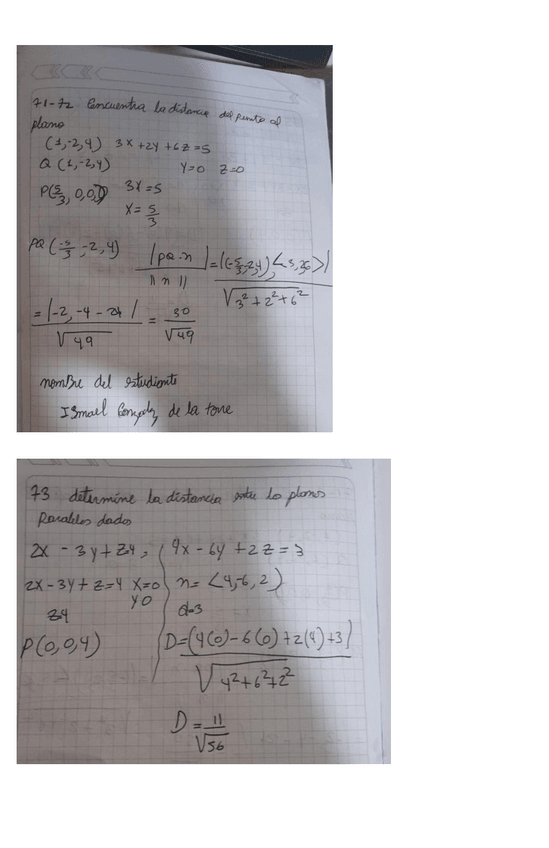 71-72 Encuentra la distancia del punto al
plano
(1,-2,4) 3x+2y+6z=5
Q(1,-2,4) y=0 z=0
P(5/3, 0,0) 3x=5
x=5/3
PQ(-5/3,-2,4) |PQ·n| / ||n|| = |(-5/3,-2,4),<3,2,6>| / √3²+2²+6²
= |-2,-4-24| / √49 = 30/√49
nombre del estudiante
Ismael de la torre
73 determine la distancia entre los planos
Paralelos dados
2x - 3y + z4, 4x - 6y + 2z = 3
2x-3y+z=4 x=0 n= <4,-6,2>
y0
z4 d=3
P(0,0,4) D=(4(0)-6(0)+2(4)+3| / √4²+6²+2²
D = 11/√56